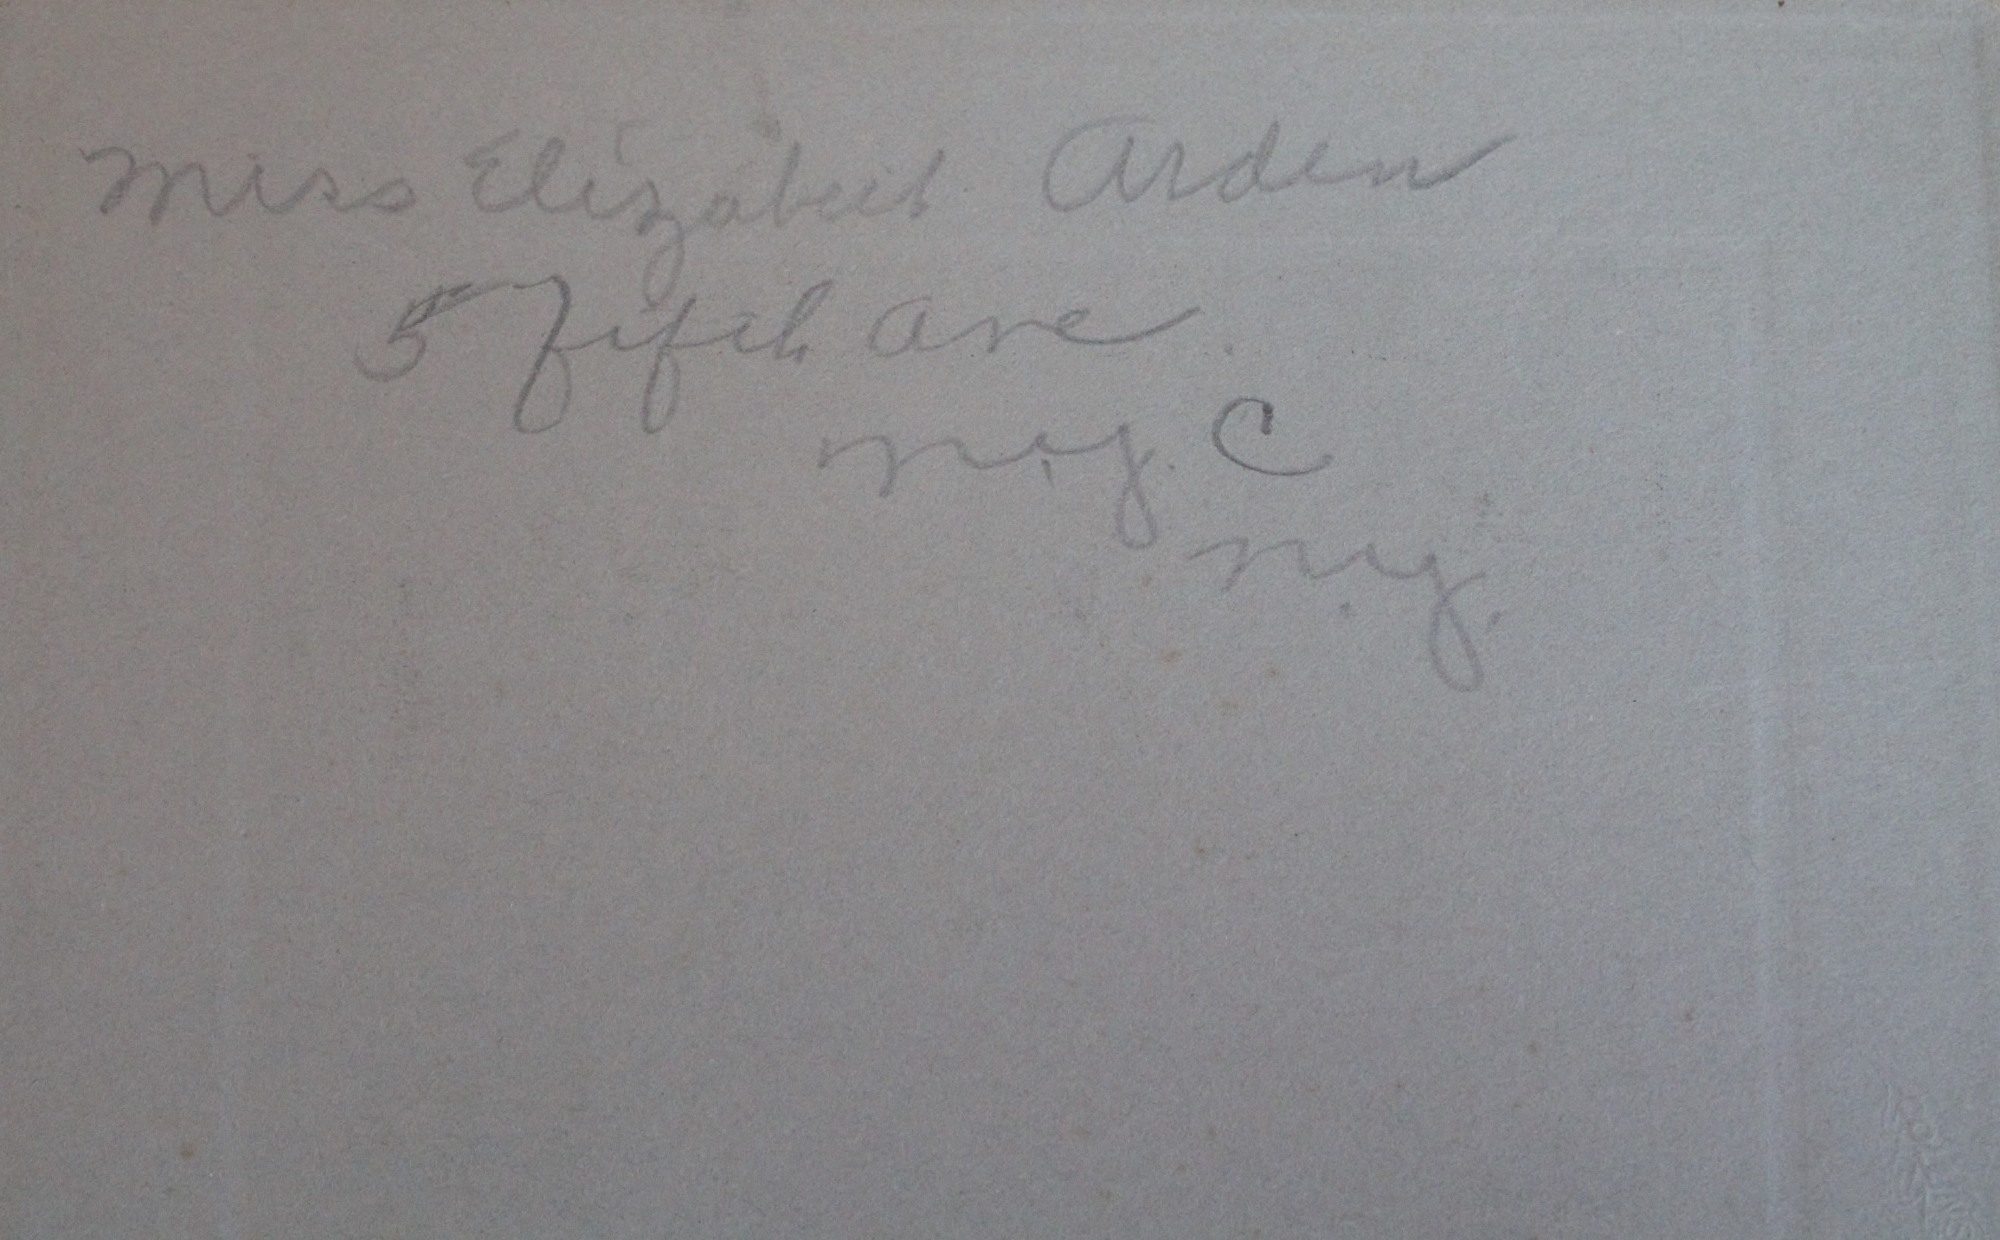 Miss Elizabeth Arden
5 Fifth Ave
N.Y. C
N.Y.